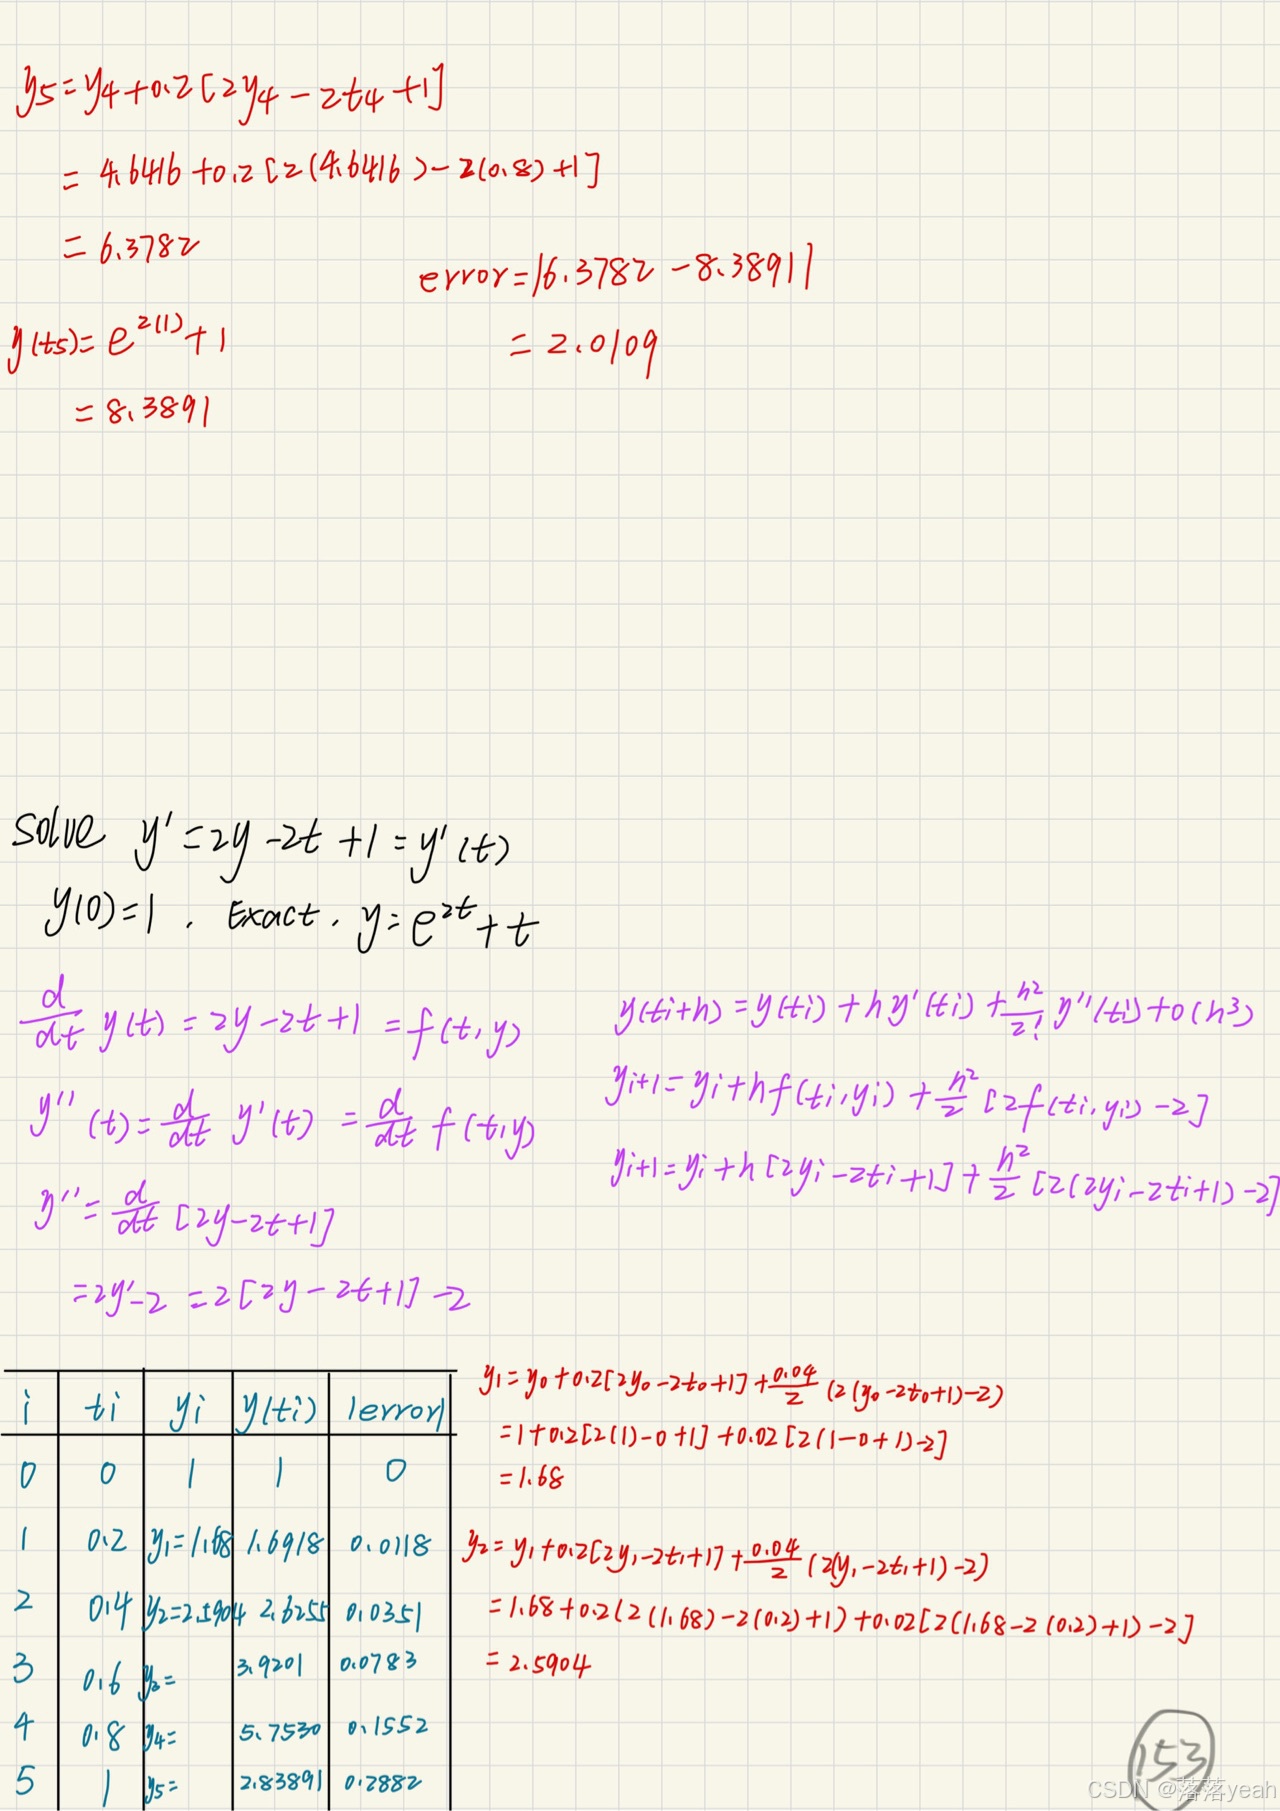 y5 = y4 + 0.2 [2y4 - 2t4 + 1]
= 4.6416 + 0.2 [2(4.6416) - 2(0.8) + 1]
= 6.3782
error = |6.3782 - 8.3891|
= 2.0109
y(t5) = e^2(1) + 1
= 8.3891
solve y' = 2y - 2t + 1 = y'(t)
y(0) = 1 . Exact . y = e^2t + t
d/dt y(t) = 2y - 2t + 1 = f(t,y)
y''(t) = d/dt y'(t) = d/dt f(t,y)
y'' = d/dt [2y - 2t + 1]
= 2y' - 2 = 2[2y - 2t + 1] - 2
y(ti+h) = y(ti) + hy'(ti) + h²/2! y''(ti) + o(h³)
yi+1 = yi + hf(ti,yi) + h²/2 [2f(ti,yi) - 2]
yi+1 = yi + h[2yi - 2ti + 1] + h²/2 [2(2yi - 2ti + 1) - 2]
i ti yi y(ti) |error|
0 0 1 1 0
1 0.2 y1=1.68 1.6918 0.0118
2 0.4 y2=2.5904 2.6255 0.0351
3 0.6 y3= 3.9201 0.0783
4 0.8 y4= 5.7530 0.1552
5 1 y5= 2.83891 0.2882
y1 = y0 + 0.2[2y0 - 2t0 + 1] + 0.04/2 (2(y0 - 2t0 + 1) - 2)
= 1 + 0.2[2(1) - 0 + 1] + 0.02 [2(1 - 0 + 1) - 2]
= 1.68
y2 = y1 + 0.2[2y1 - 2t1 + 1] + 0.04/2 (2(y1 - 2t1 + 1) - 2)
= 1.68 + 0.2(2(1.68) - 2(0.2) + 1) + 0.02[2(1.68 - 2(0.2) + 1) - 2]
= 2.5904
153
CSDN @落落yeah